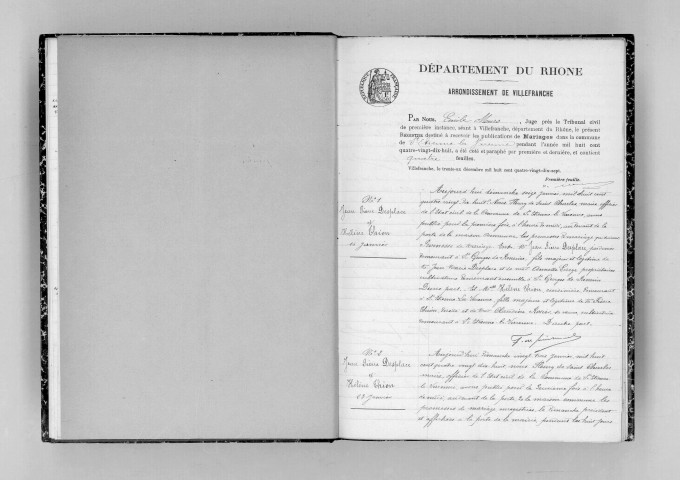 DÉPARTEMENT DU RHONE
ARRONDISSEMENT DE VILLEFRANCHE
PAR NOUS, Juge près le Tribunal civil
de première instance, séant à Villefranche, département du Rhône, le présent
REGISTRE destiné à recevoir les publications de Mariages dans la commune
de St Etienne la Varenne pendant l'année mil huit cent
quatre-vingt-dix-huit, a été coté et paraphé par première et dernière, et contient
quatre feuilles.
Villefranche, le trente-un décembre mil huit cent quatre-vingt-dix-sept.
Première feuille.
N° 1
Jean Pierre Desplace
et
Hélène Thion
janvier
Aujourd'hui dimanche janvier mil huit cent
quatre vingt dix huit Nous Fleury de Saint Charles maire officier
de l'Etat civil de la Commune de St Etienne la Varenne, avons
publié pour la première fois, à l'heure de midi, au devant de la
porte de la maison commune les promesses de mariage
promesses de mariage entre Mr Jean Pierre Desplace
demeurant à St Georges de Reneins, fils majeur et légitime de
Mr Jean Marie Desplace et de propriétaires
cultivateurs demeurant ensemble à St Georges de Reneins
D'une part, Et Mlle Hélène Thion, demeurant
à St Etienne La Varenne fille majeure et légitime de Mr Pierre
Thion et de
demeurant à St Etienne la Varenne D'autre part.
N° 2
Jean Pierre Desplace
et
Hélène Thion
23 janvier
Aujourd'hui dimanche vingt trois janvier mil huit
cent quatre vingt dix huit nous Fleury de Saint Charles
maire, officier de l'Etat civil de la Commune de St Etienne
la Varenne, avons publié pour la deuxième fois à l'heure
de midi, au devant de la porte de la maison commune les
promesses de mariage le dimanche précédent
et affichées à la porte de la mairie, pendant les huit jours